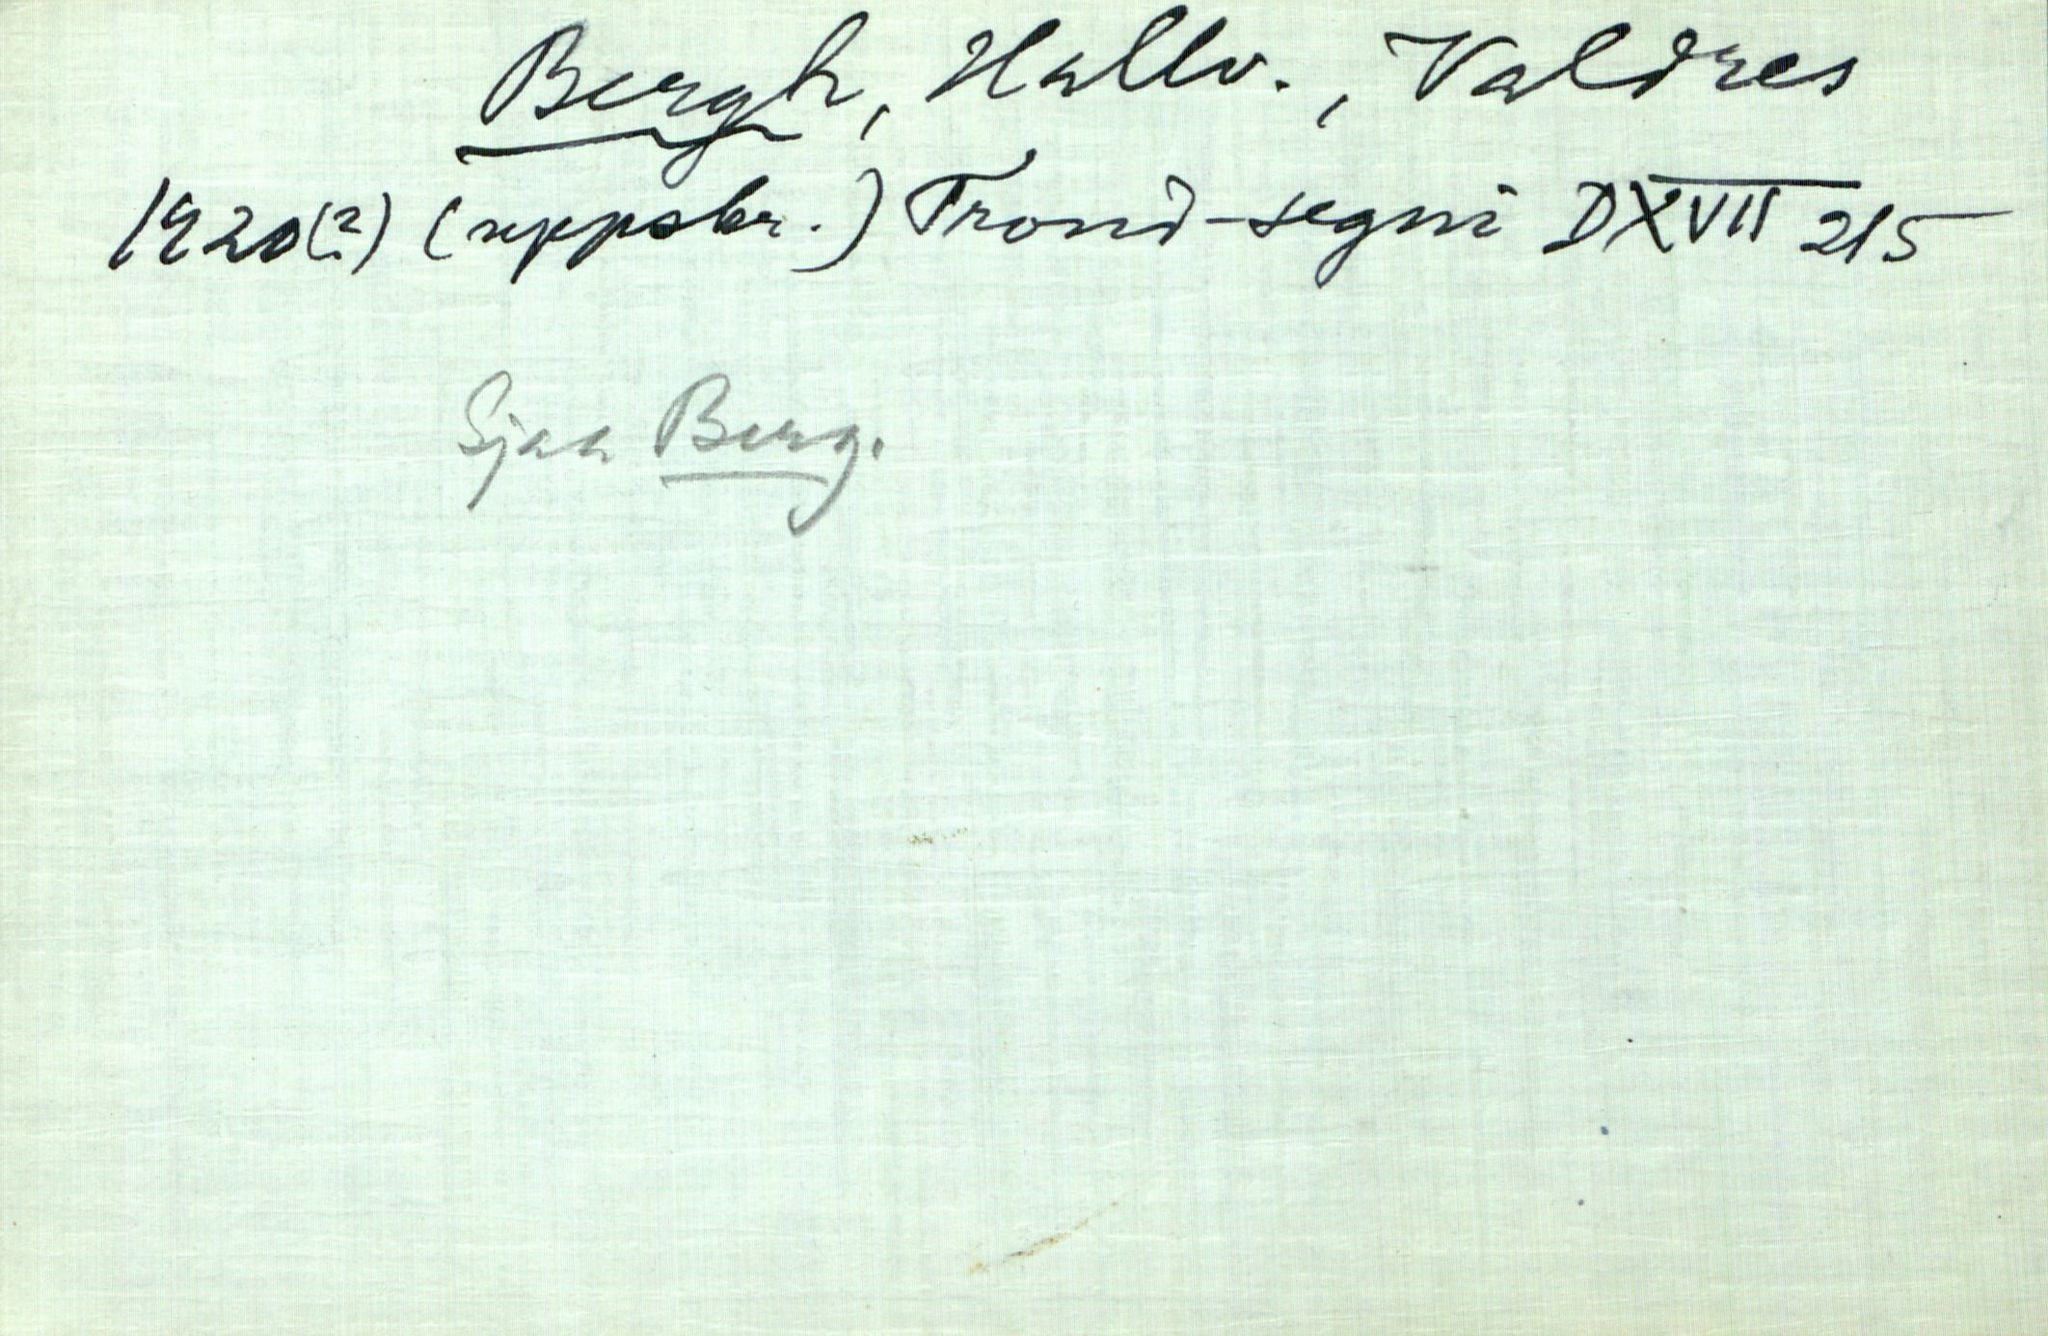 Bergh, Hallv., Valdres
1920(?) (uppskr.) Trond-segni DXVII 215
Sjaa Berg.